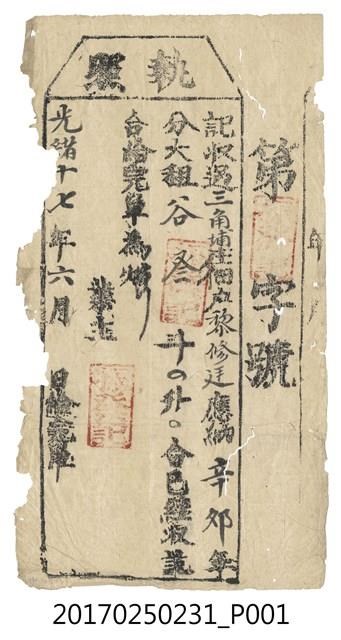 執照
第 字號
記收過三角埔庄佃戶黎修廷應納辛卯年
分大租谷叄斗〇升〇合已經收訖
合給完單為炤
業主
光緒十七年六月 日給完單
20170250231_P001